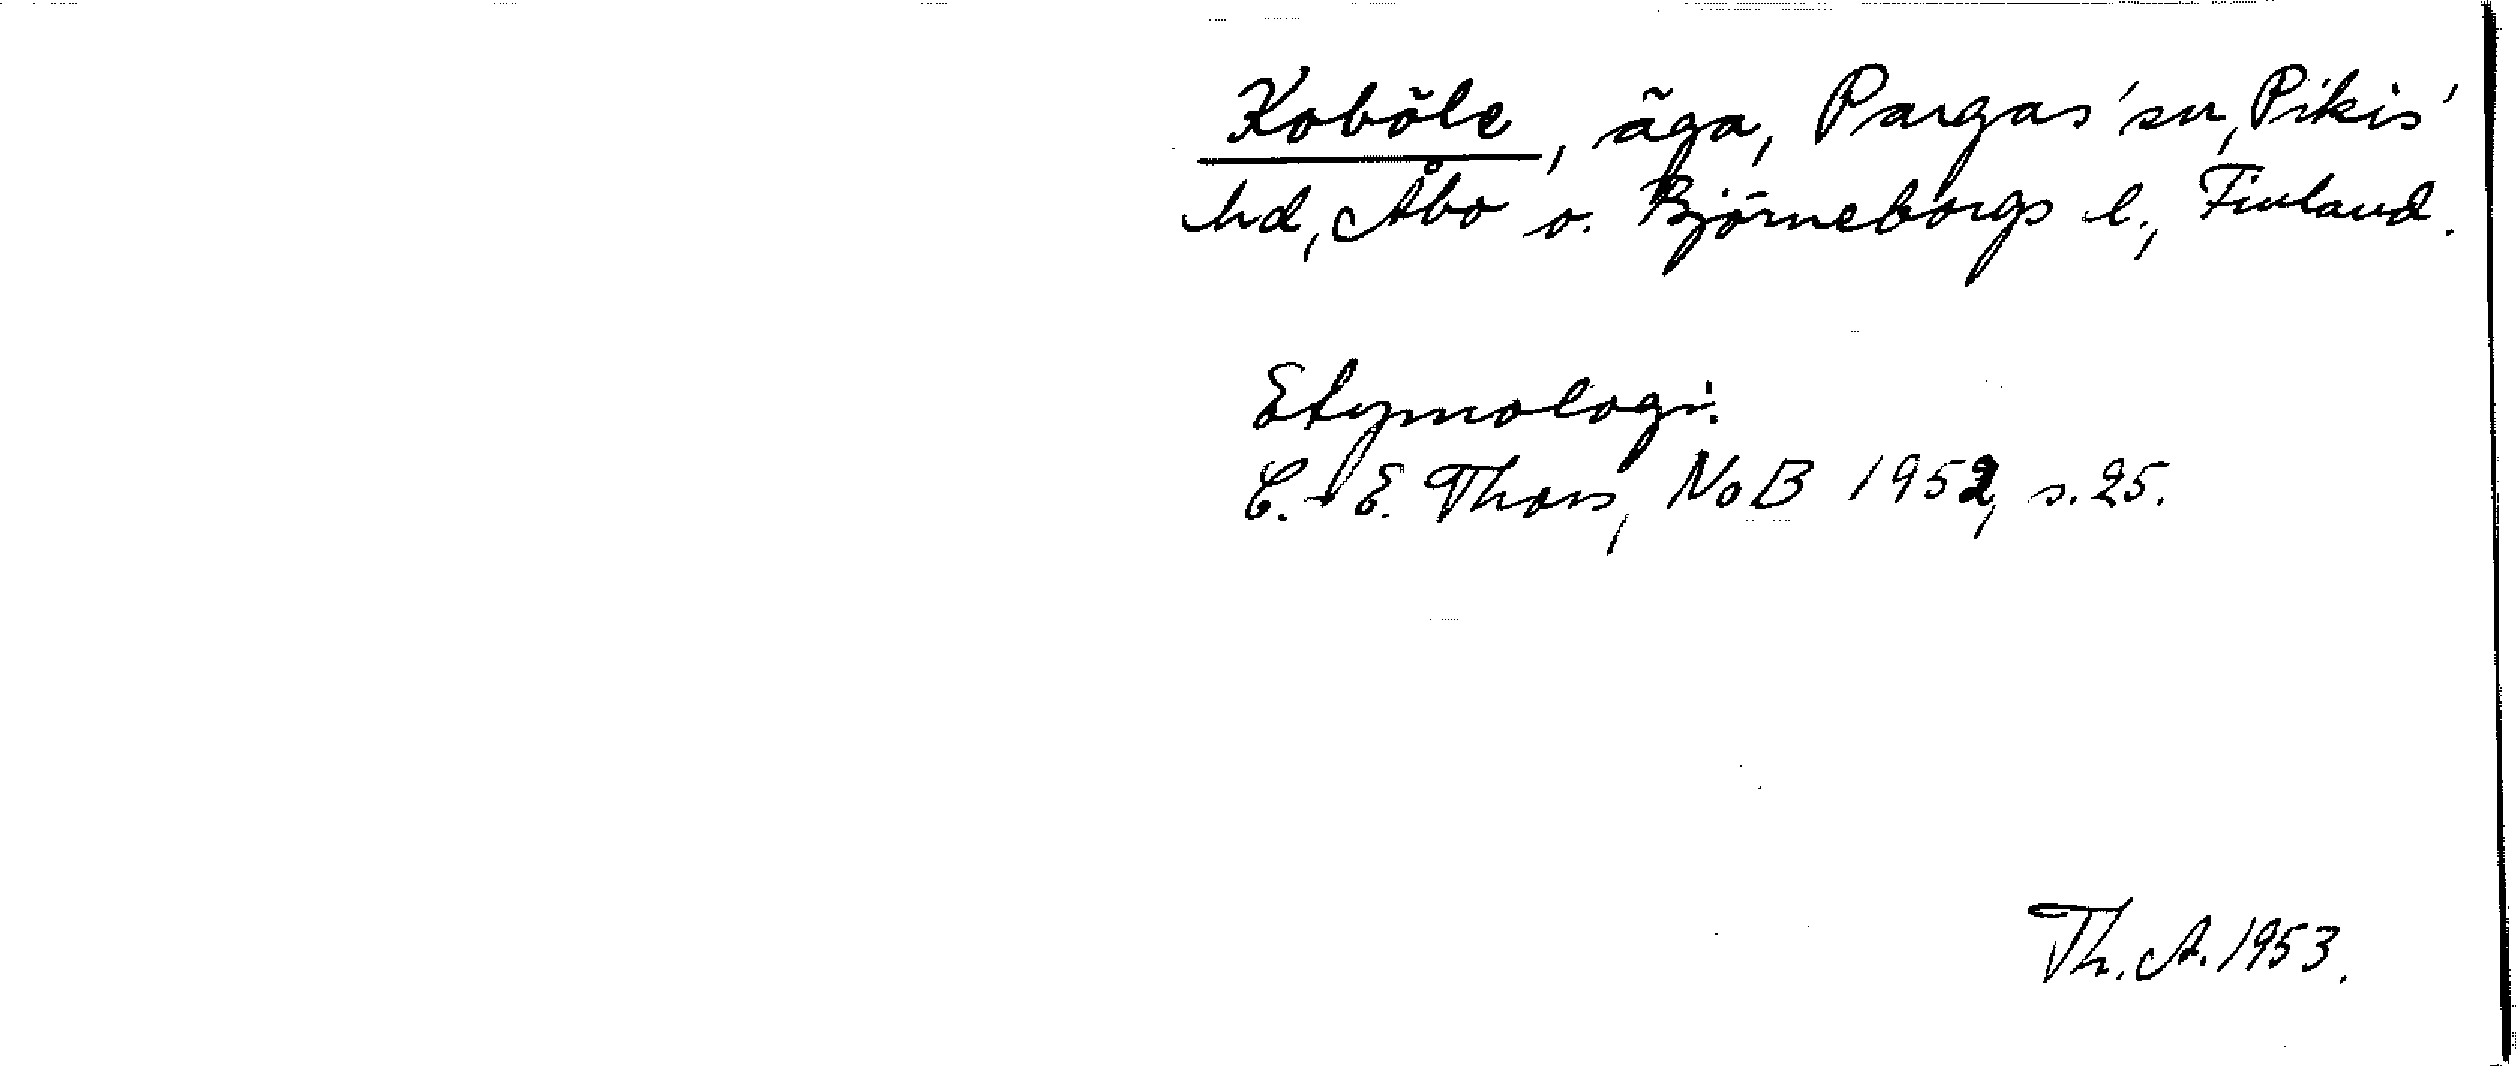 Koböle, äga, Pargas sn, Pikis
hd, Åbo o. Björneborgs l., Finland.
Etymologi:
C.-E. Thors, NoB 1952, s. 25.
Th. A. 1953.